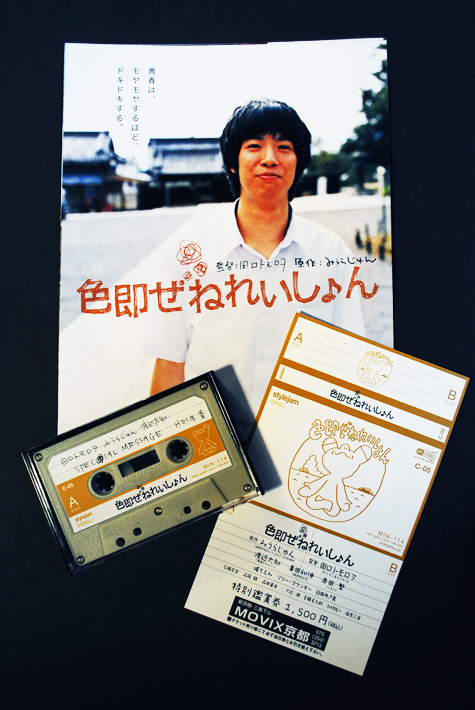 青春は、
モヤモヤするほど、
ドキドキする。
監督:田口トモロヲ 原作:みうらじゅん
色即ぜねれいしょん
A
B
色即ぜねれいしょん
stylejam
色即ぜねれいしょん
C-05
MIN-114
B
色即ぜねれいしょん
原作 みうらじゅん 監督 田口トモロヲ
渡辺大知 峯田和伸 岸田繁
堀ちえみ リリー・フランキー 臼田あさ美
特別鑑賞券 1,500円
MOVIX京都
075
(254)
3215
田口トモロヲ みうらじゅん 渡辺大知
SPECIAL MESSAGE
C-05
A
stylejam
MIN-114
色即ぜねれいしょん